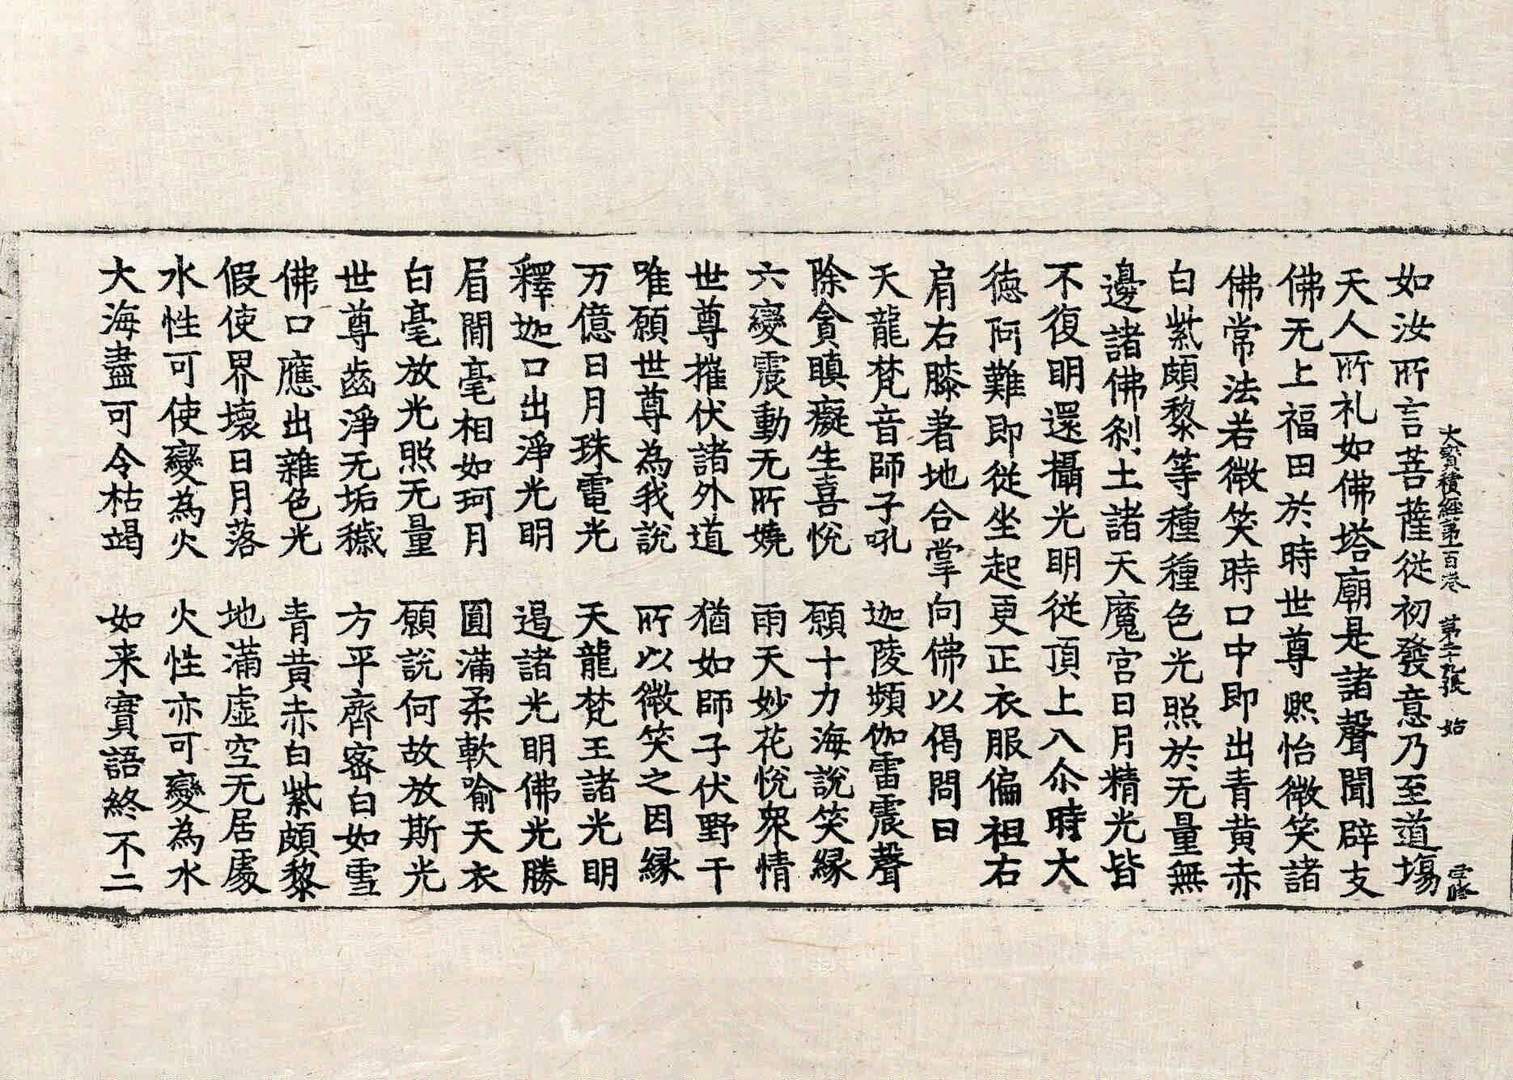 大寶積經第一百卷 第二十九張 始
如汝所言菩薩從初發意乃至道場
天人所礼如佛塔廟是諸聲聞辟支
佛无上福田於時世尊熙怡微笑諸
佛常法若微笑時口中即出青黃赤
白紫頗黎等種種色光照於无量無
邊諸佛刹土諸天魔宮日月精光皆
不復明還攝光明從頂上入尒時大
德阿難即從坐起更正衣服偏袒右
肩右膝著地合掌向佛以偈問曰
天龍梵音師子吼 迦陵頻伽雷震聲
除貪瞋癡生喜悅 願十力海說笑緣
六變震動无所嬈 雨天妙花悅衆情
世尊摧伏諸外道 猶如師子伏野干
唯願世尊為我說 所以微笑之因緣
万億日月珠電光 天龍梵王諸光明
釋迦口出淨光明 過諸光明佛光勝
眉間毫相如珂月 圓滿柔軟喻天衣
白毫放光照无量 願說何故放斯光
世尊齒淨无垢穢 方平齊密白如雪
佛口應出雜色光 青黃赤白紫頗黎
假使界壞日月落 地滿虛空无居處
水性可使變為火 火性亦可變為水
大海盡可令枯竭 如来實語終不二